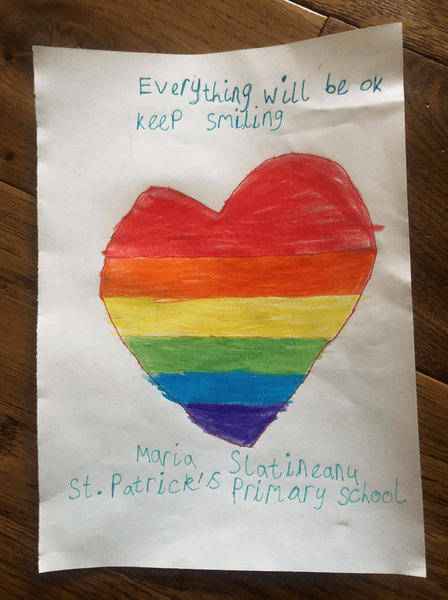 Everything will be ok
keep smiling
Maria Slatineanu
St. Patrick's Primary School